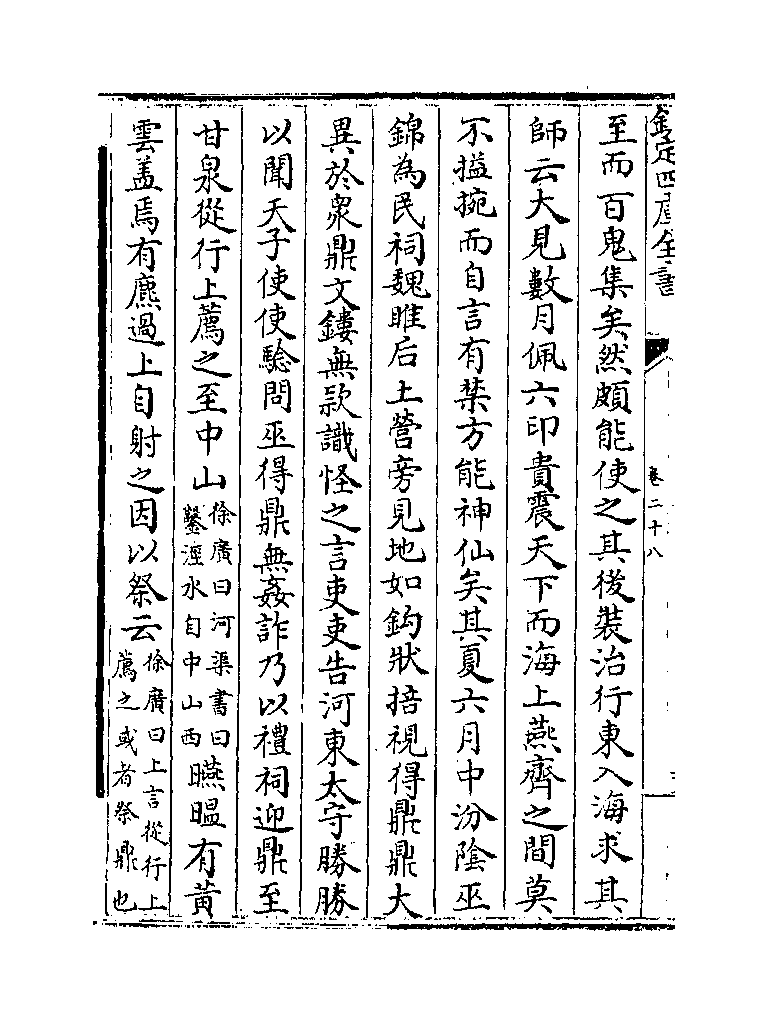 欽定四庫全書
卷二十八
至而百鬼集矣然頗能使之其後裝治行東入海求其
師云大見數月佩六印貴震天下而海上燕齊之間莫
不搤捥而自言有禁方能神仙矣其夏六月中汾陰巫
錦為民祠魏脽后土營旁見地如鈎狀掊視得鼎鼎大
異於衆鼎文鏤無款識怪之言吏吏告河東太守勝勝
以聞天子使使驗問巫得鼎無姦詐乃以禮祠迎鼎至
甘泉從行上薦之至中山徐廣曰河渠書曰鑿涇水自中山西曣㬈有黄
雲盖焉有麃過上自射之因以祭云徐廣曰上言從行上薦之或者祭鼎也